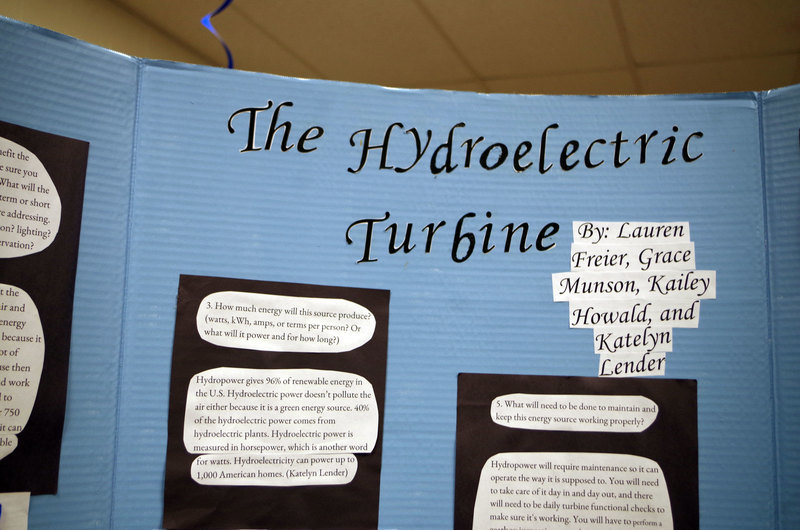 The Hydroelectric
Turbine
By: Lauren
Freier, Grace
Munson, Kailey
Howald, and
Katelyn
Lender
efit the
e sure you
What will the
term or short
e addressing.
on? lighting?
ervation?
t the
ir and
energy
because it
ot of
use then
d work
to
750
it can
ble
3. How much energy will this source produce?
(watts, kWh, amps, or terms per person? Or
what will it power and for how long?)
Hydropower gives 96% of renewable energy in
the U.S. Hydroelectric power doesn't pollute the
air either because it is a green energy source. 40%
of the hydroelectric power comes from
hydroelectric plants. Hydroelectric power is
measured in horsepower, which is another word
for watts. Hydroelectricity can power up to
1,000 American homes. (Katelyn Lender)
5. What will need to be done to maintain and
keep this energy source working properly?
Hydropower will require maintenance so it can
operate the way it is supposed to. You will need
to take care of it day in and day out, and there
will need to be daily turbine functional checks to
make sure it's working. You will have to perform a